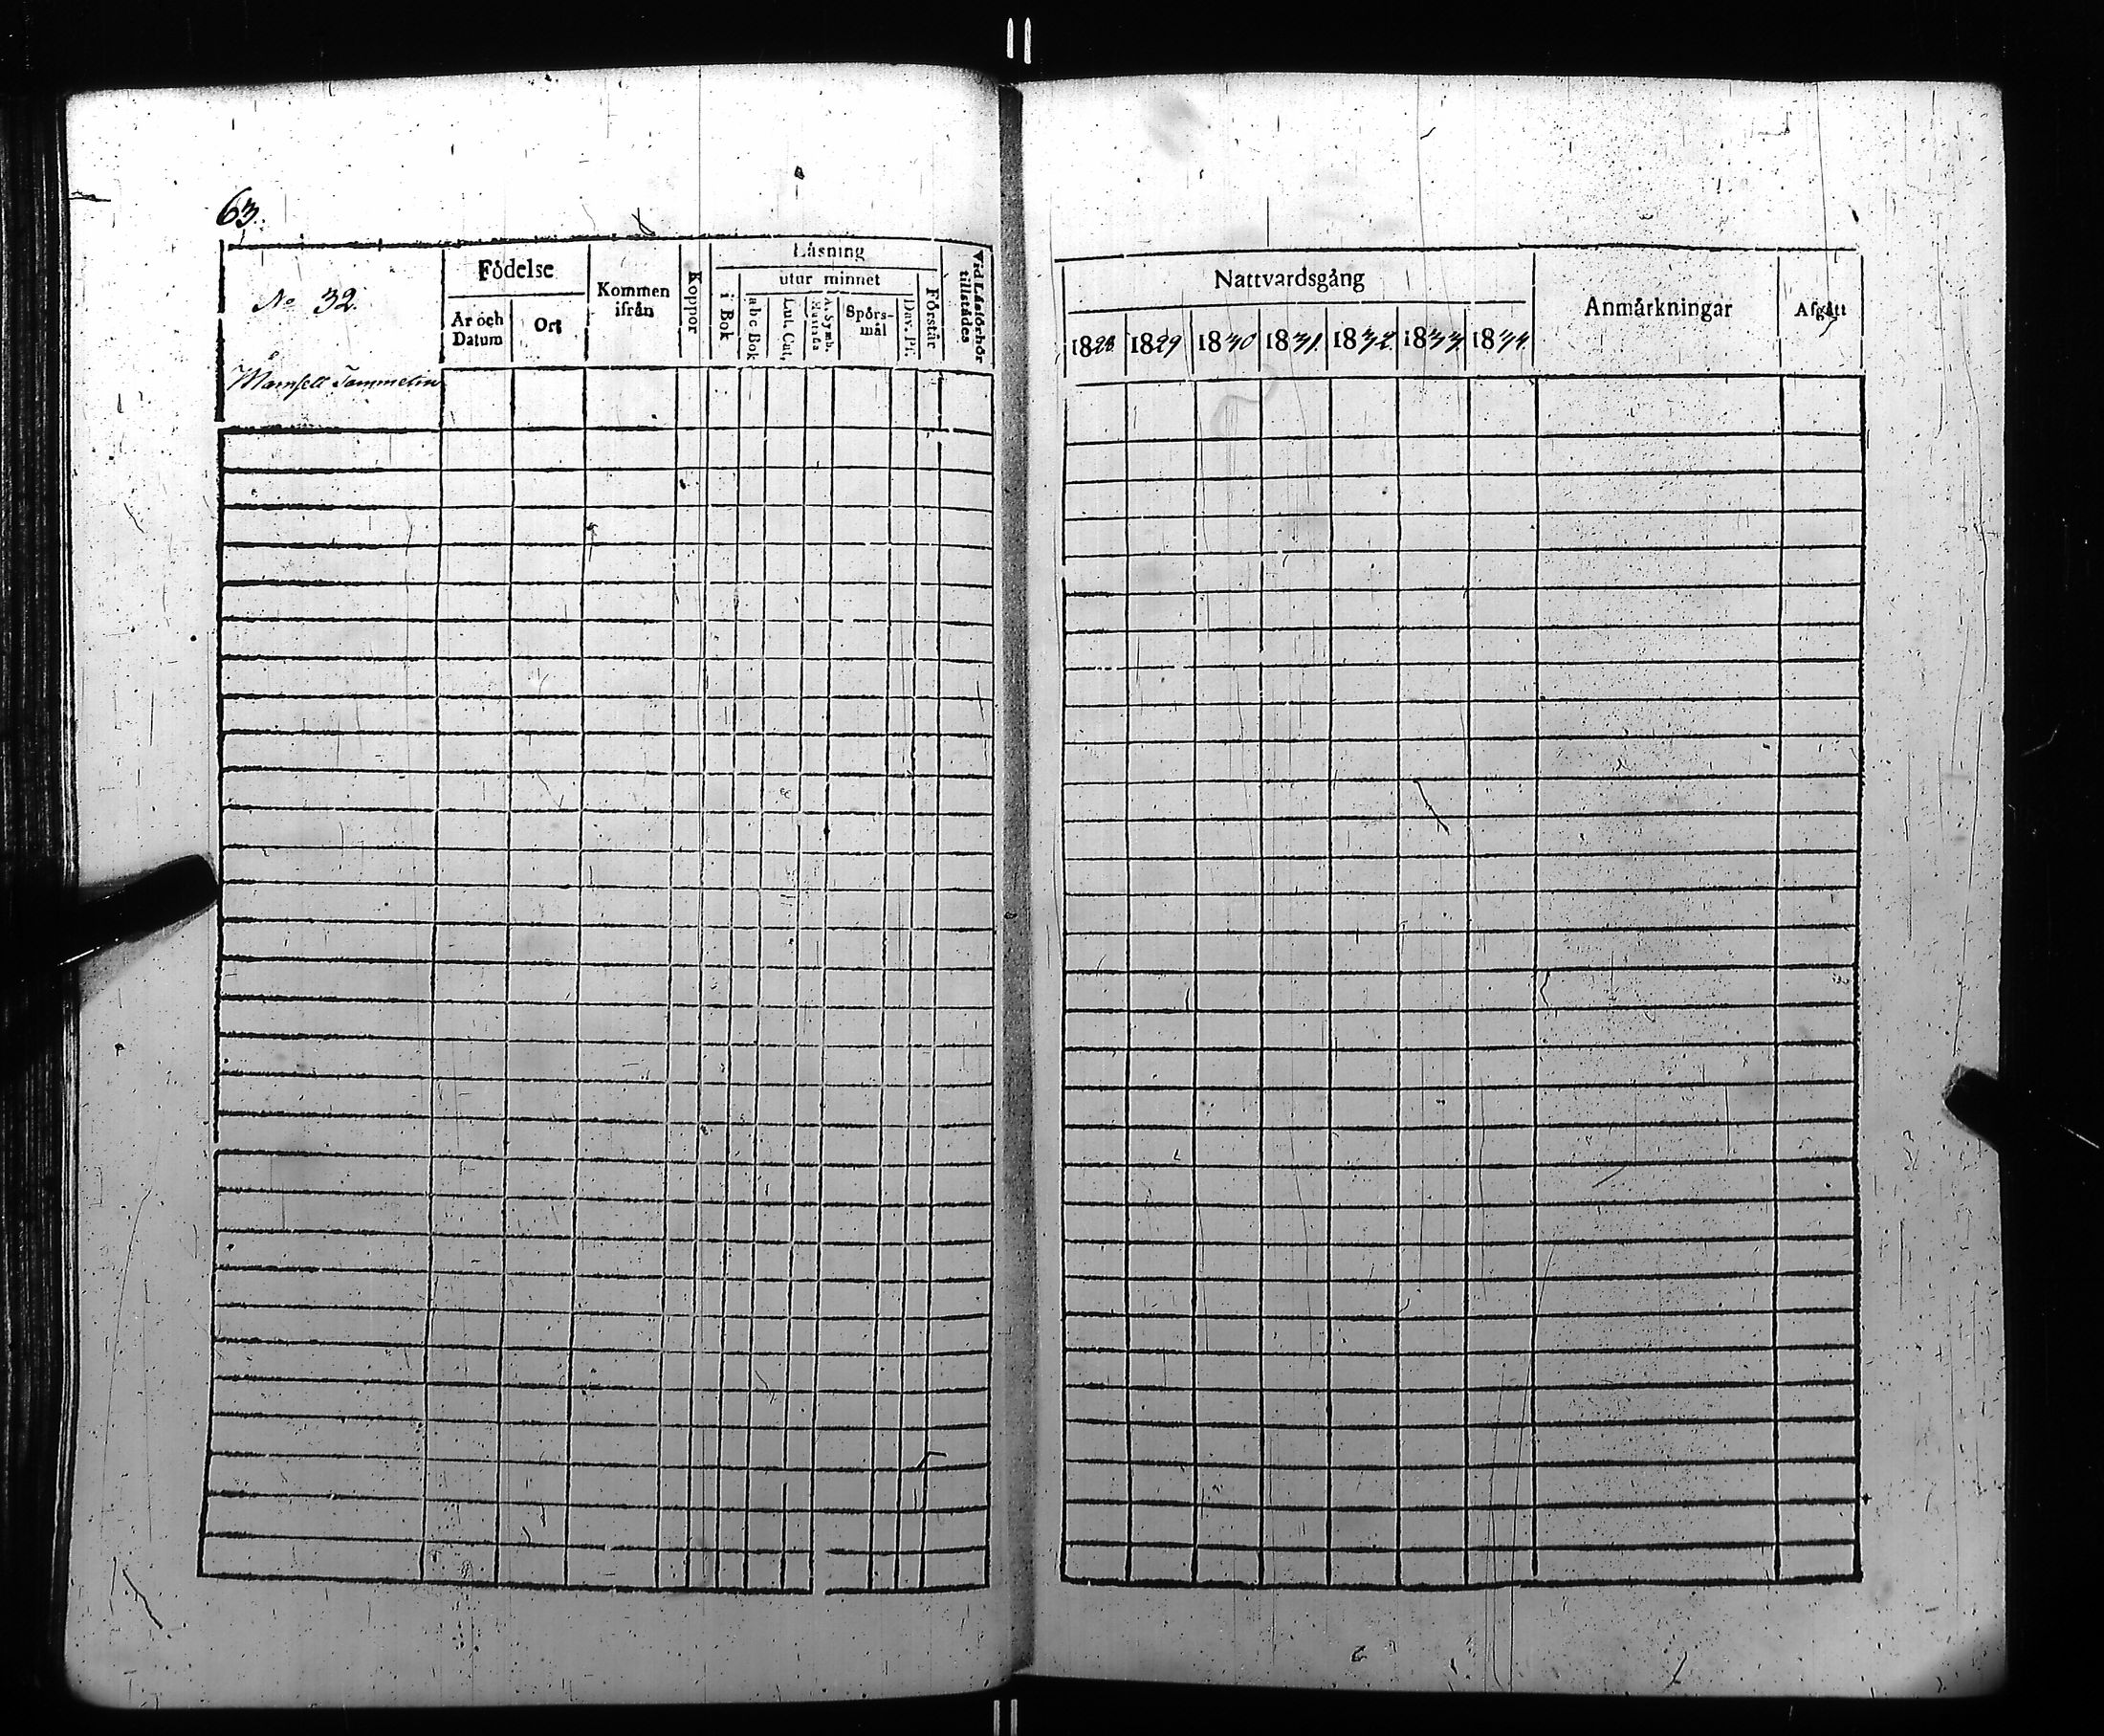 63.
No 32.
Födelse
År och Datum
Ort
Kommen ifrån
Koppor
Läsning
utur minnet
i Bok
abc Bok
Lut. Cat.
A. Symb.
Spörsmål
Dav. Ps.
Förstår
Vid Läsförhör tillstådes
Mamsell Tammelin
Nattvardsgång
1828 1829 1830 1831. 1832. 1833 1834.
Anmärkningar
Afgått